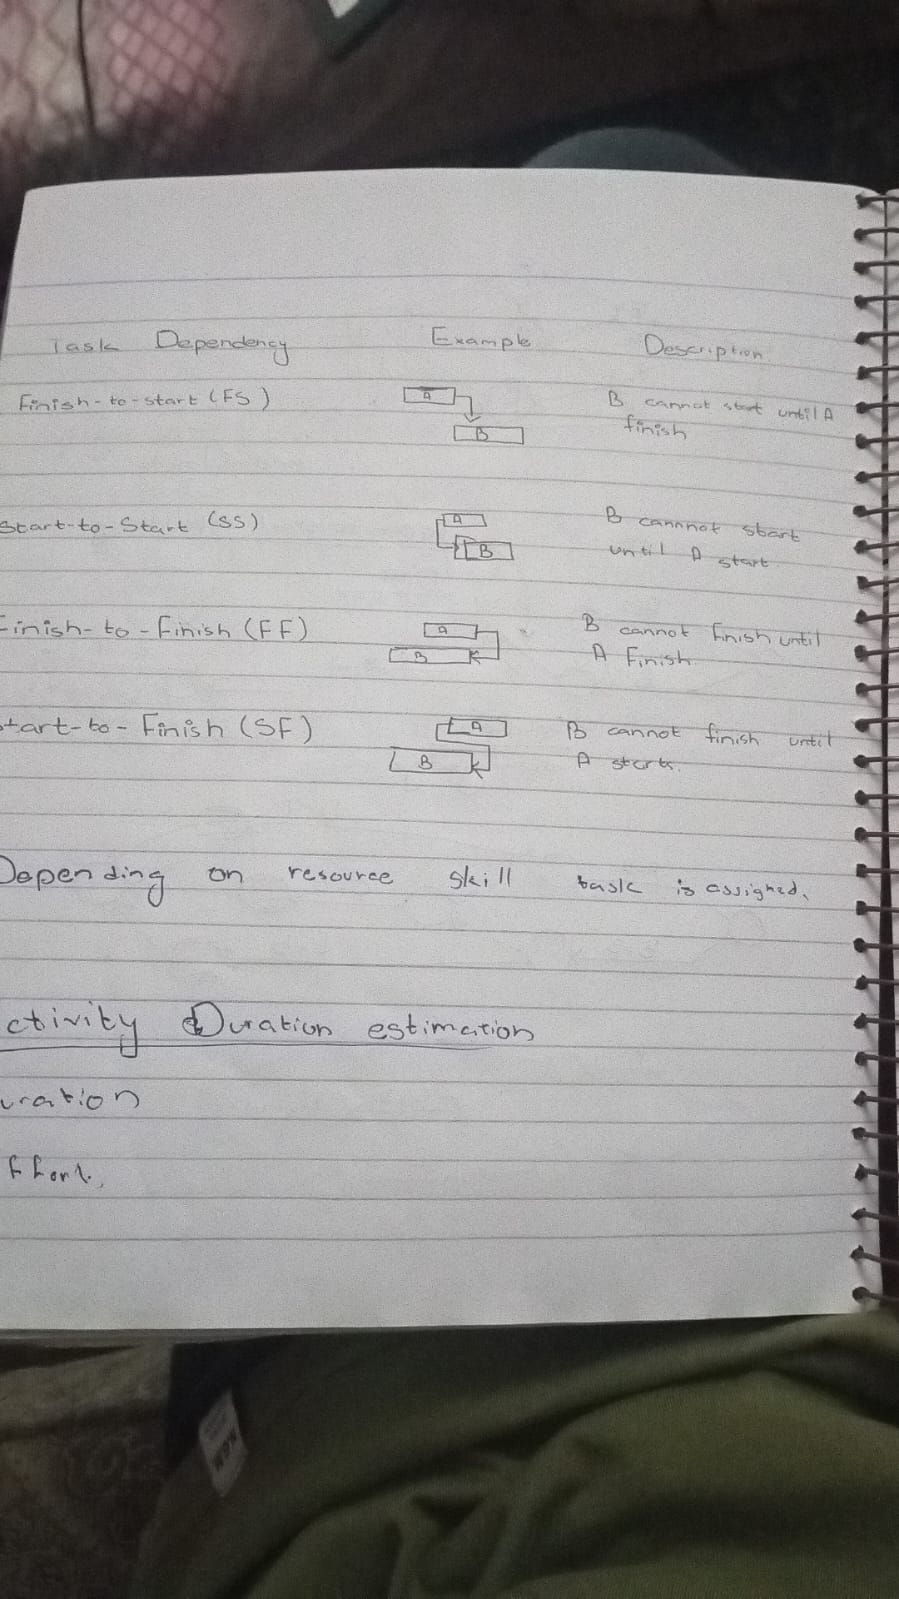 Task Dependency Example Description
Finish-to-start (FS) A B cannot start until A
B finish
Start-to-Start (SS) A B cannnot start
B until A start
Finish-to-Finish (FF) A B cannot finish until
B A Finish.
tart-to-Finish (SF) A B cannot finish until
B A starts.
Depending on resource skill task is assigned.
ctivity Duration estimation
uration
ffort.